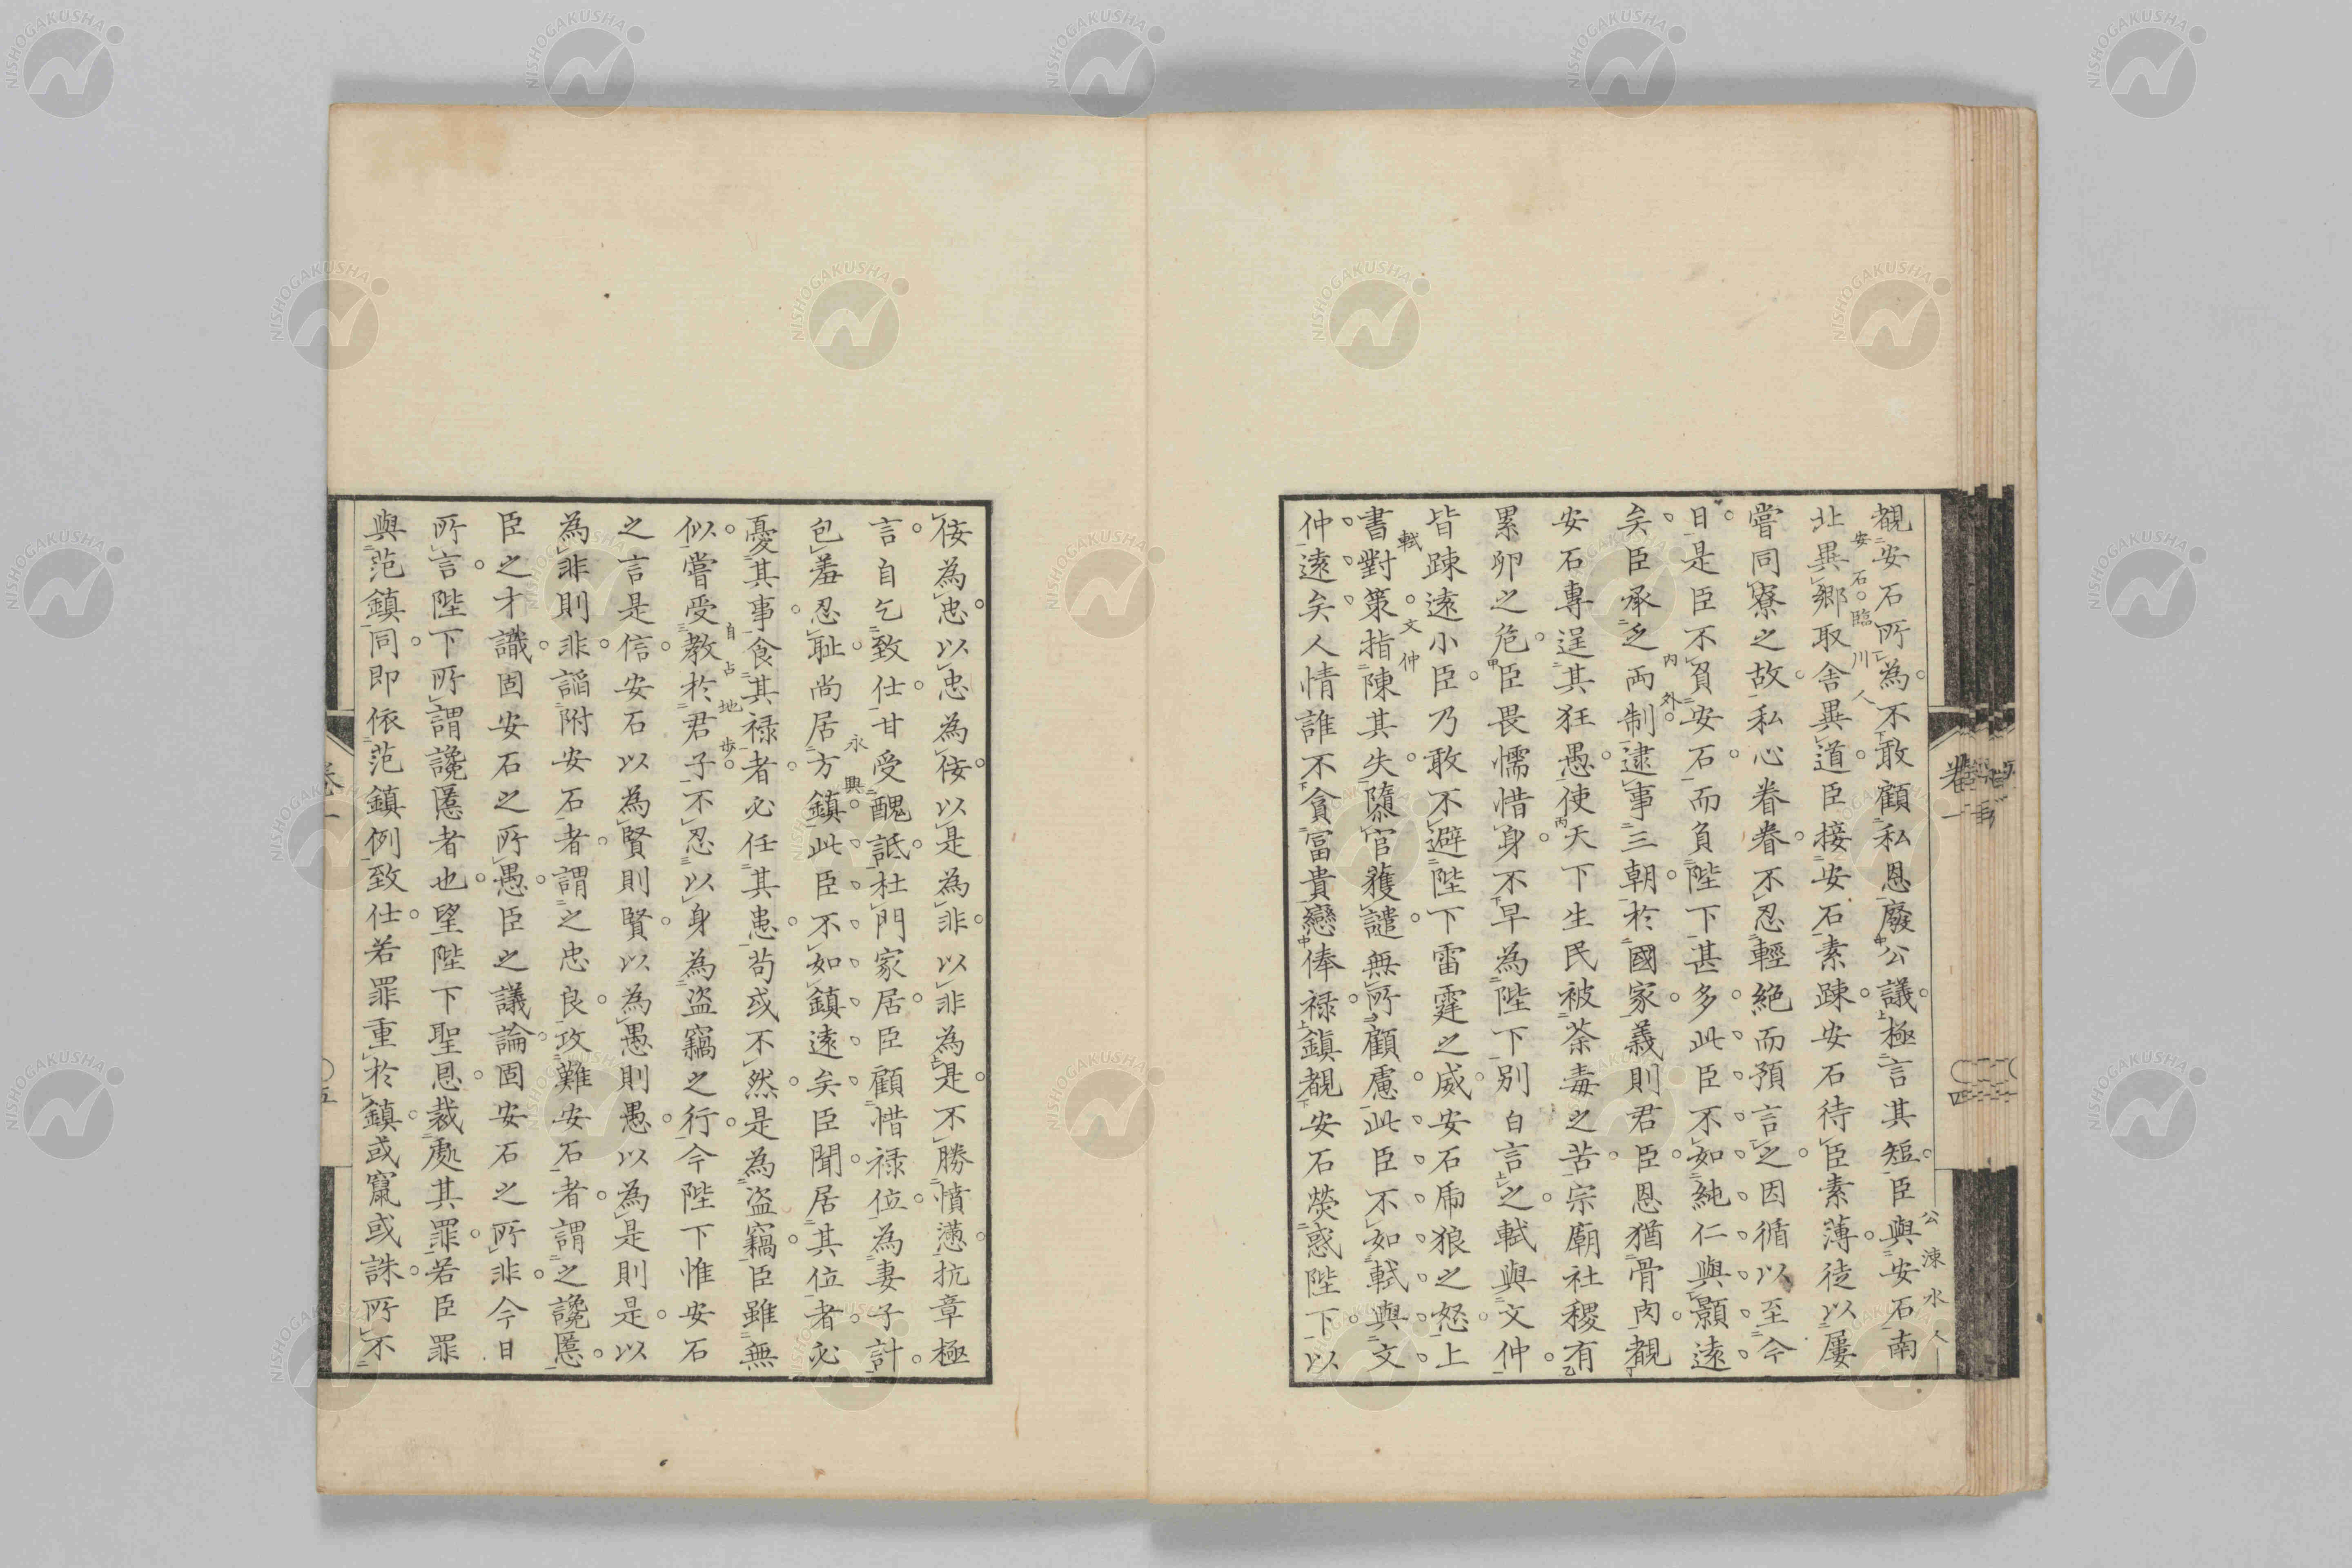 覩安石所為不敢顧私恩廢公議極言其短臣與安石南
北異鄉取舍異道臣接安石素踈安石待臣素薄徒以屢
嘗同寮之故私心眷眷不忍輕絕而預言之因循以至今
日是臣不負安石而負陛下甚多此臣不如純仁與顥遠
矣臣承乏兩制逮事三朝於國家義則君臣恩猶骨肉覩
安石專逞其狂愚使天下生民被荼毒之苦宗廟社稷有
累卵之危臣畏懦惜身不早為陛下別白言之軾與文仲
皆踈遠小臣乃敢不避陛下雷霆之威安石乕狼之怒上
書對策指陳其失隳官獲譴無所顧慮此臣不如軾與文
仲遠矣人情誰不貪富貴戀俸祿鎮覩安石熒惑陛下以
佞為忠以忠為佞以是為非以非為是不勝憤懣抗章極
言自乞致仕甘受醜詆杜門家居臣顧惜祿位為妻子計
包羞忍耻尚居方鎮此臣不如鎮遠矣臣聞居其位者必
憂其事食其祿者必任其患苟或不然是為盜竊臣雖無
似嘗受教於君子不忍以身為盜竊之行今陛下惟安石
之言是信安石以為賢則賢以為愚則愚以為是則是以
為非則非謟附安石者謂之忠良攻難安石者謂之讒慝
臣之才識固安石之所愚臣之議論固安石之所非今日
所言陛下所謂讒慝者也望陛下聖恩裁處其罪若臣罪
與范鎮同即依范鎮例致仕若罪重於鎮或竄或誅所不
安石臨川人
公涑水人
內外
軾文仲
永興
自占地步
卷一
四
五
NISHOGAKUSHA